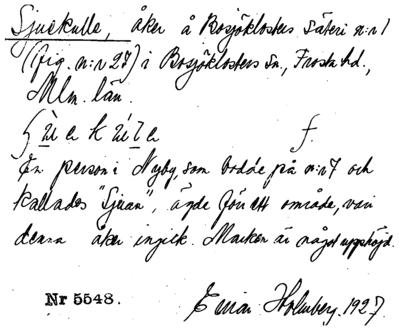 Sjuekulle, åker å Bosjöklosters säteri n:r 1
(fig. n:r 27) i Bosjöklosters sn., Frosta hd.,
Mlm. län.
f.
En person i Nyby, som bodde på n:r 7 och
kallades "Sjuan", ägde förr ett område, vari
denna åker ingick. Marken är något upphöjd.
Nr 5548. Einar Holmberg. 1927